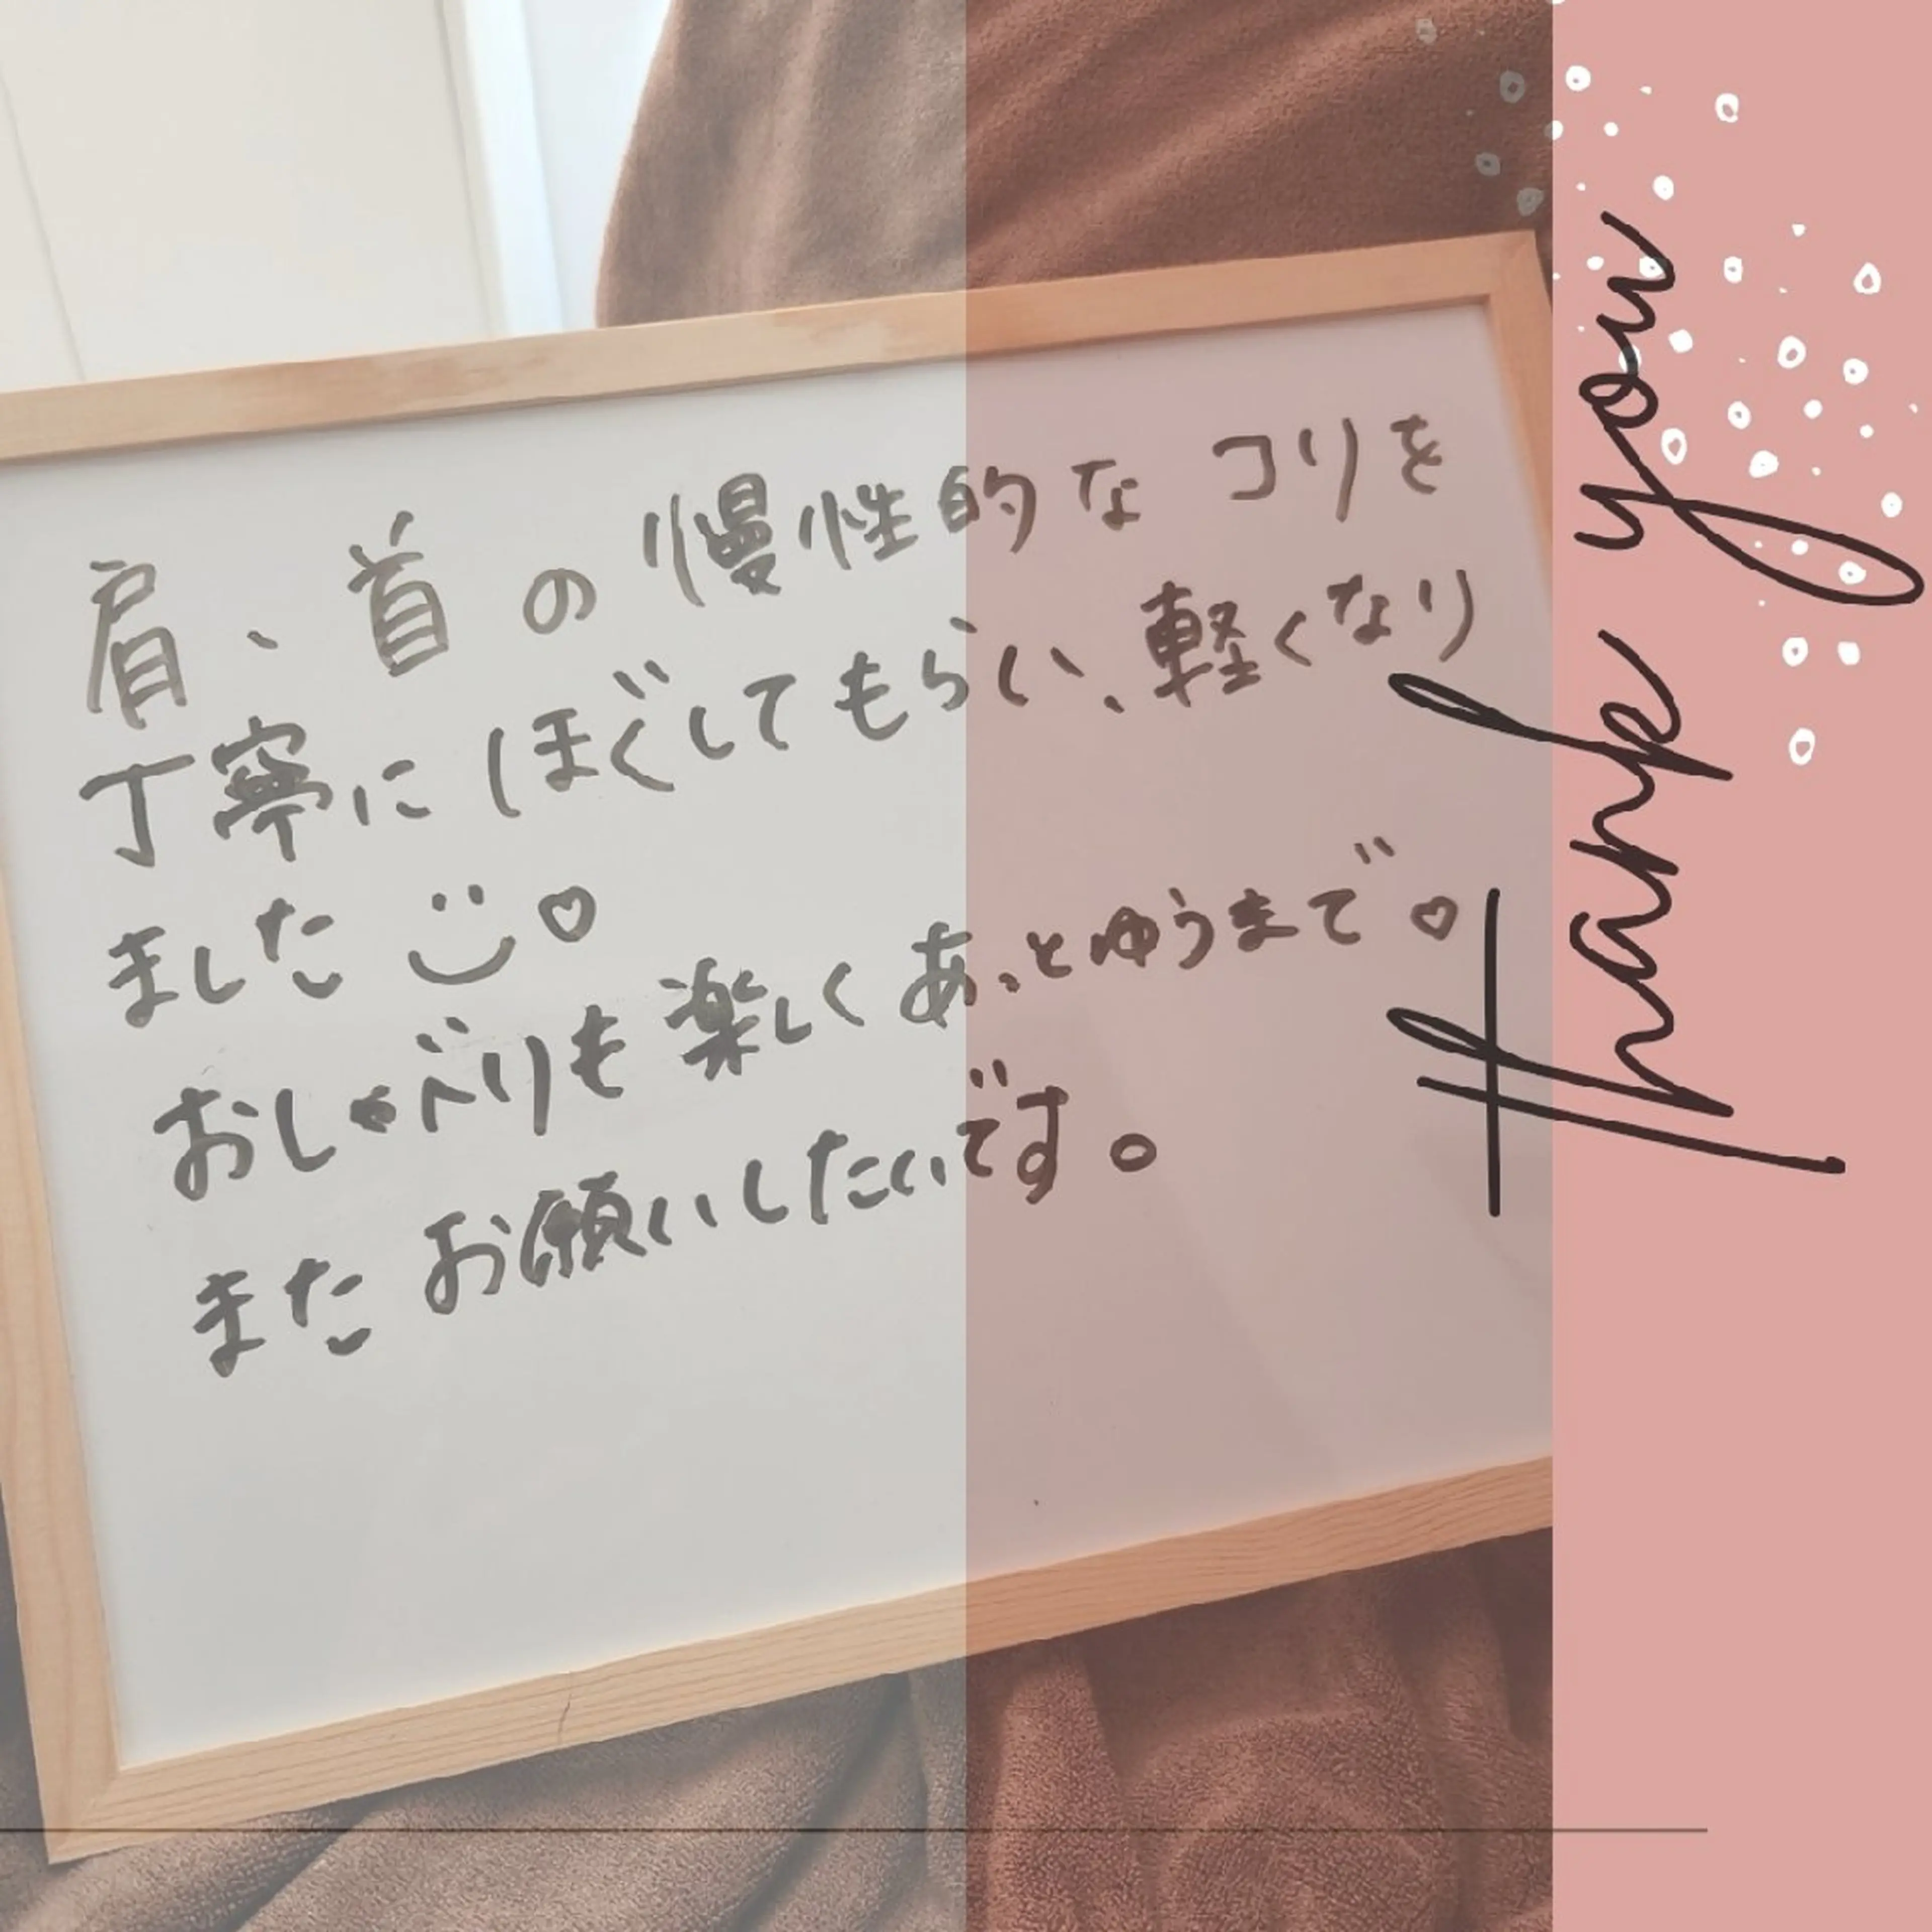 肩、首の慢性的なコリを
丁寧にほぐしてもらい、軽くなり
ました♡
おしゃべりも楽しくあっとゆうまで♡
またお願いしたいです。
thank you